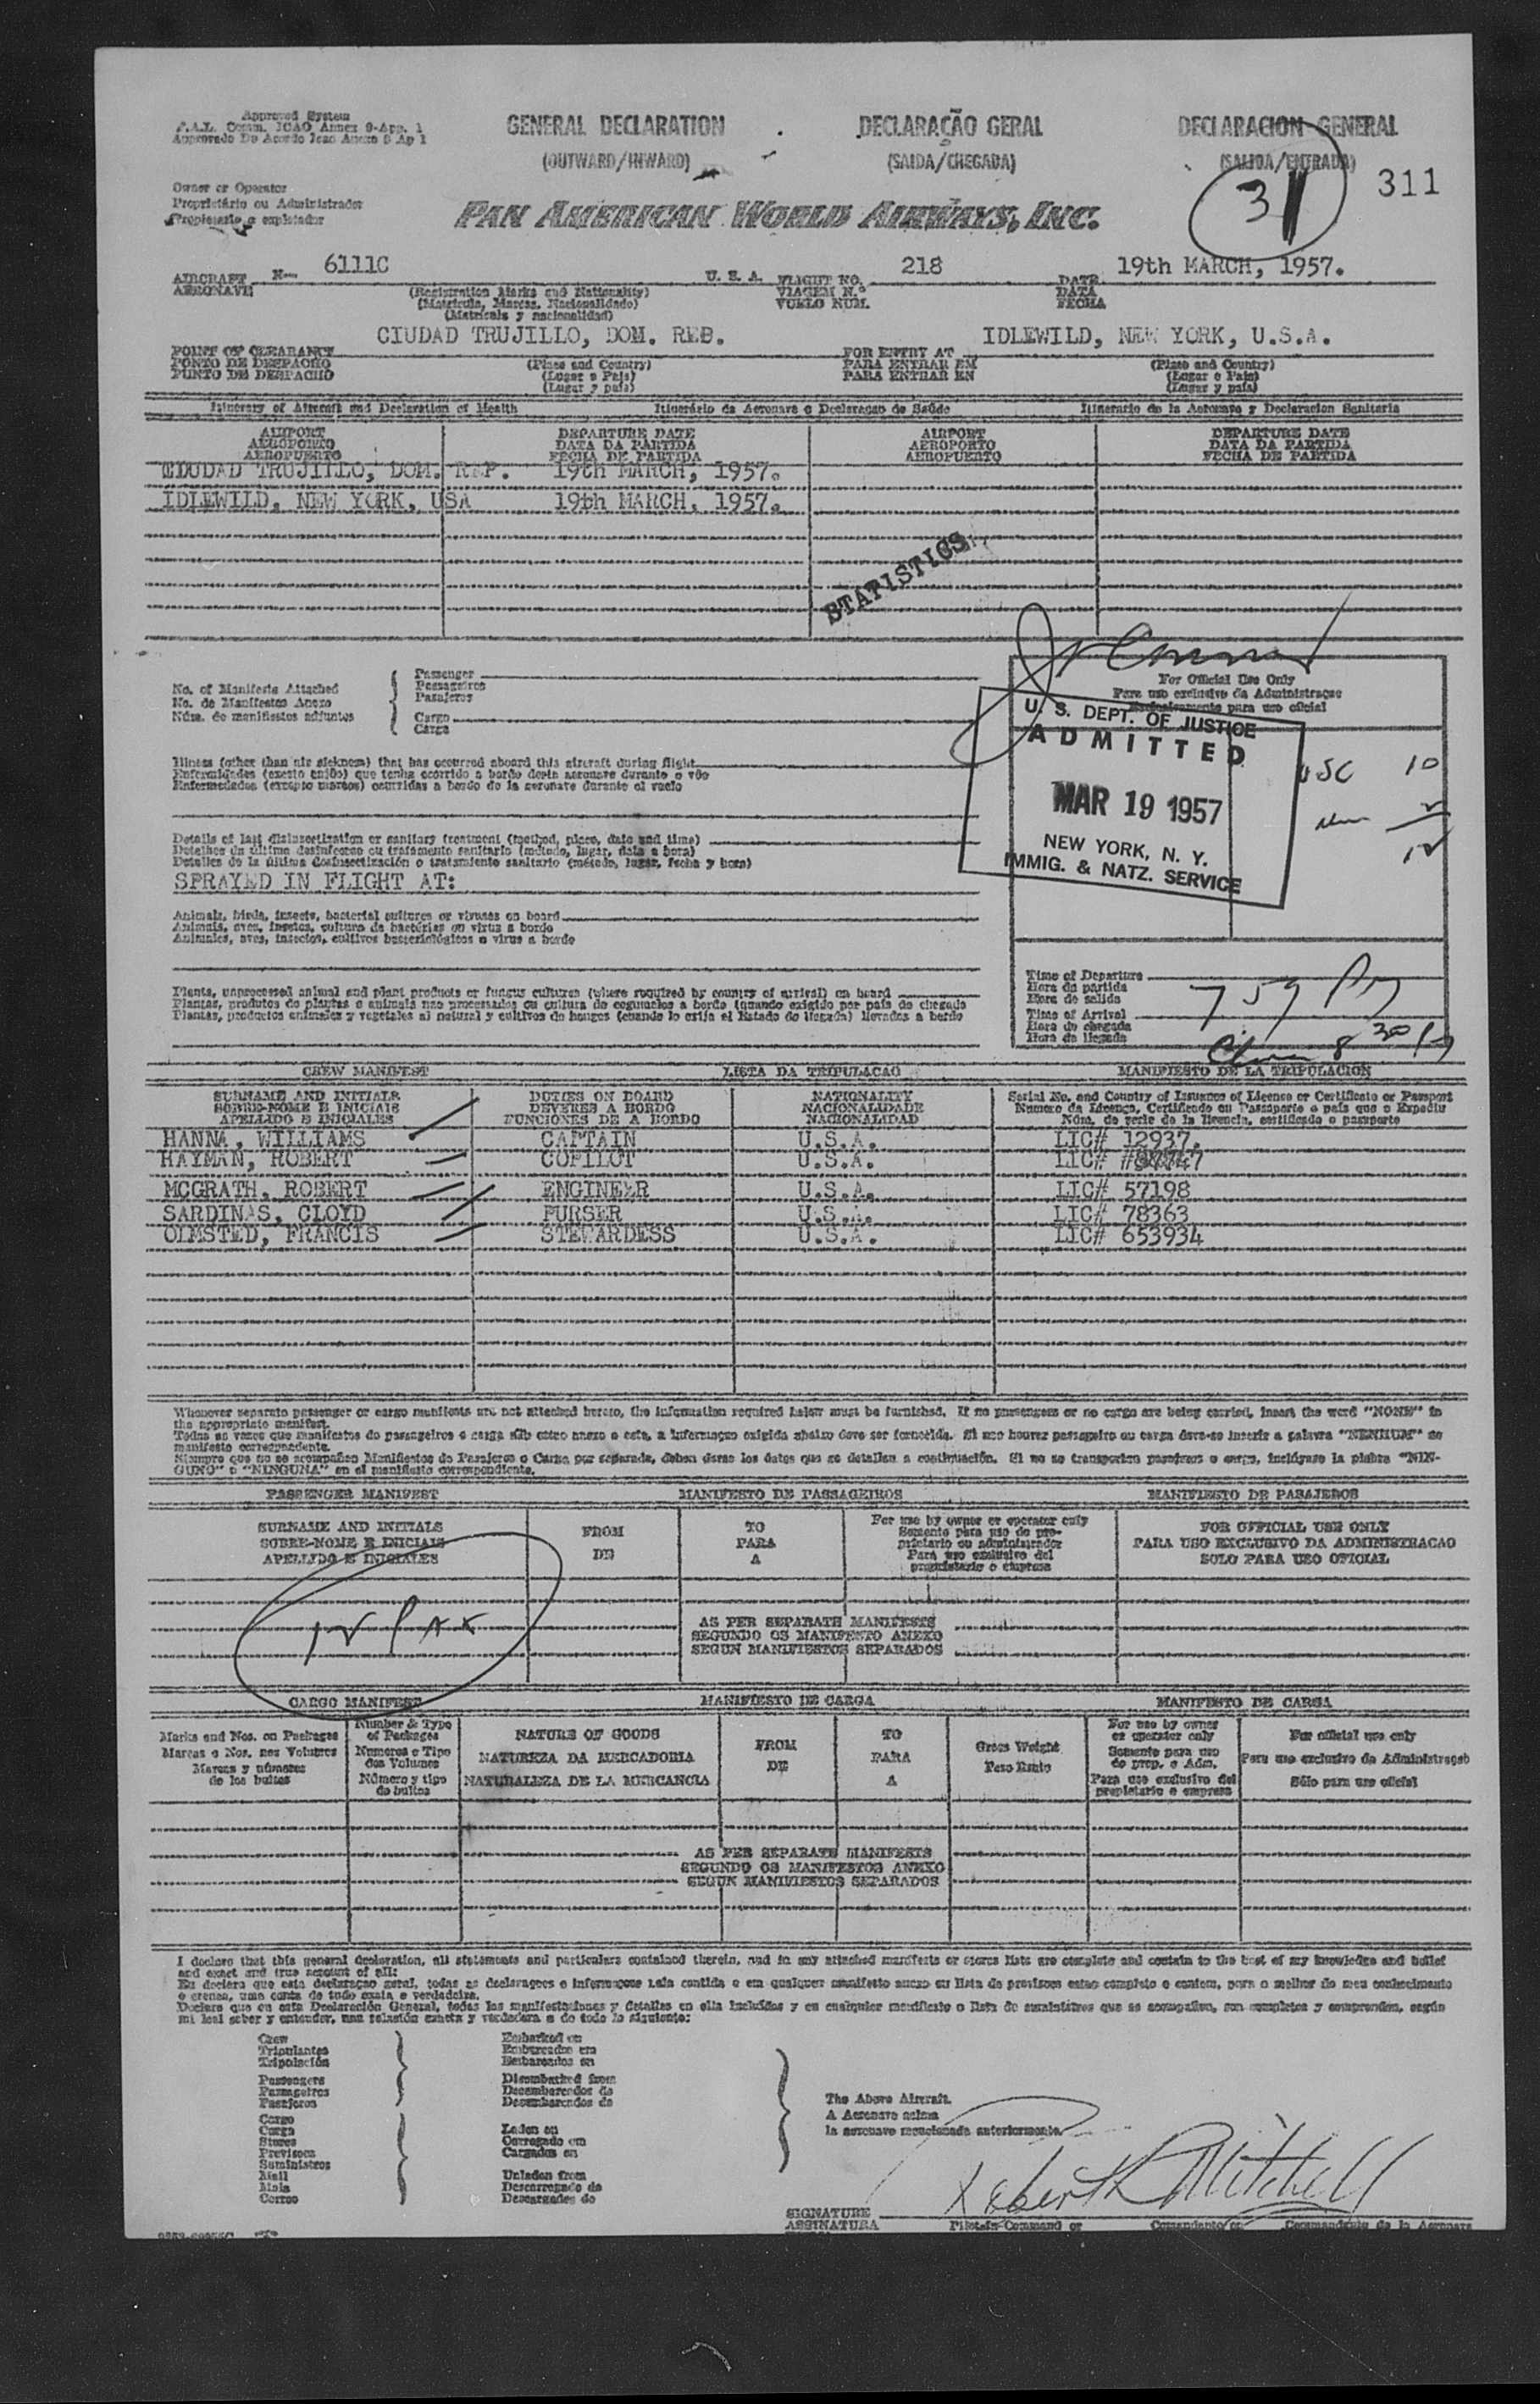 Approved System
F.A.L. Comm. ICAO Annex 9-App. 1
Approvado De Acordo Icao Anexo 9 Ap 1
GENERAL DECLARATION
(OUTWARD/INWARD)
DECLARAÇÃO GERAL
(SAIDA/CHEGADA)
DECLARACION GENERAL
(SALIDA/ENTRADA)
31
311
Owner or Operator
Proprietário ou Administrador
Propietario o explotador
PAN AMERICAN WORLD AIRWAYS, INC.
AIRCRAFT N— 6111C U. S. A. FLIGHT NO. 218 DATE 19th MARCH, 1957.
AERONAVE (Registration Marks and Nationality) VIAGEM N.º DATA
(Matricula, Marcas, Nacionalidade) VUELO NUM. FECHA
(Matricula y nacionalidad)
CIUDAD TRUJILLO, DOM. REB. IDLEWILD, NEW YORK, U.S.A.
POINT OF CLEARANCE FOR ENTRY AT
PONTO DE DESPACHO (Place and Country) PARA ENTRAR EM (Place and Country)
PUNTO DE DESPACHO (Lugar e Pais) PARA ENTRAR EN (Lugar e Pais)
(Lugar y país) (Lugar y país)
Itinerary of Aircraft and Declaration of Health Itinerário da Aeronave e Declaraçao de Saúde Itinerario de la Aeronave y Declaracion Sanitaria
AIRPORT DEPARTURE DATE AIRPORT DEPARTURE DATE
AEROPORTO DATA DA PARTIDA AEROPORTO DATA DA PARTIDA
AEROPUERTO FECHA DE PARTIDA AEROPUERTO FECHA DE PARTIDA
CIUDAD TRUJILLO, DOM. REP. 19th MARCH, 1957.
IDLEWILD, NEW YORK, USA 19th MARCH, 1957.
STATISTICS
No. of Manifests Attached
No. de Manifestos Anexo
Núm. de manifiestos adjuntos
Passenger
Passageiros
Pasajeros
Cargo
Carga
For Official Use Only
Para uso exclusivo da Administraçao
Exclusivamente para uso oficial
U. S. DEPT. OF JUSTICE
ADMITTED
MAR 19 1957
NEW YORK, N. Y.
IMMIG. & NATZ. SERVICE
USC 10
12
Illness (other than air sickness) that has occurred aboard this aircraft during flight
Enfermidades (exceto enjôo) que tenha ocorrido a bordo desta aeronave durante o vôo
Enfermedades (excepto mareos) ocurridas a bordo de la aeronave durante el vuelo
Details of last disinsectization or sanitary treatment (method, place, date and time)
Detalhes da última desinfeccao ou tratamento sanitario (método, lugar, data e hora)
Detalles de la última desinsectización o tratamiento sanitario (método, lugar, fecha y hora)
SPRAYED IN FLIGHT AT:
Animals, birds, insects, bacterial cultures or viruses on board
Animais, aves, insetos, cultura de bactérias ou virus a bordo
Animales, aves, insectos, cultivos bacteriológicos o virus a bordo
Plants, unprocessed animal and plant products or fungus cultures (where required by country of arrival) on board
Plantas, produtos de plantas e animais nao processados ou cultura de cogumelos a bordo (quando exigido por país de chegada
Plantas, productos animales y vegetales al natural y cultivos de hongos (cuando lo exija el Estado de llegada) llevados a bordo
Time of Departure
Hora da partida
Hora de salida
Time of Arrival
Hora de chegada
Hora de llegada
7 59 PM
8 30 PM
CREW MANIFEST LISTA DA TRIPULACAO MANIFIESTO DE LA TRIPULACION
SURNAME AND INITIALS DUTIES ON BOARD NATIONALITY Serial No. and Country of Issuance of License or Certificate or Passport
SOBRE-NOME E INICIAIS DEVERES A BORDO NACIONALIDADE Numero da Licenca, Certificado ou Passaporte e país que o Expediu
APELLIDO E INICIALES FUNCIONES DE A BORDO NACIONALIDAD Núm. de serie de la licencia, certificado o pasaporte
HANNA, WILLIAMS CAPTAIN U.S.A. LIC# 12937.
HAYMAN, ROBERT COPILOT U.S.A. LIC#
MCGRATH, ROBERT ENGINEER U.S.A. LIC# 57198
SARDINAS, CLOYD PURSER U.S.A. LIC# 78363
OLMSTED, FRANCIS STEWARDESS U.S.A. LIC# 653934
Whenever separate passenger or cargo manifests are not attached hereto, the information required below must be furnished. If no passengers or no cargo are being carried, insert the word "NONE" in
the appropriate manifest.
Todas as vezes que manifestos de passageiros e carga nao esteo anexo a este, a informaçao exigida abaixo deve ser fornecida. Si nao houver passageiro ou carga deve-se inserir a palavra "NENHUM" no
manifesto correspondente.
Siempre que no se acompañen Manifiestos de Pasajeros o Carga por separado, deben darse los datos que se detallan a continuación. Si no se transporten pasajeros o carga, inclúyase la plabra "NIN-
GUNO" o "NINGUNA" en el manifiesto correspondiente.
PASSENGER MANIFEST MANIFESTO DE PASSAGEIROS MANIFIESTO DE PASAJEROS
SURNAME AND INITIALS
SOBRE-NOME E INICIAIS
APELLIDO E INICIALES
FROM
DE
TO
PARA
A
For use by owner or operator only
Somente para uso do pro-
prietario ou administrador
Para uso exclusivo del
propietario o empresa
FOR OFFICIAL USE ONLY
PARA USO EXCLUSIVO DA ADMINISTRACAO
SOLO PARA USO OFICIAL
12 PAX
AS PER SEPARATE MANIFESTS
SEGUNDO OS MANIFESTO ANEXO
SEGUN MANIFIESTOS SEPARADOS
CARGO MANIFEST MANIFIESTO DE CARGA MANIFESTO DE CARGA
Marks and Nos. on Packages
Marcas e Nos. nos Volumes
Marcas y números
de los bultos
Number & Type
of Packages
Numeros e Tipo
dos Volumes
Número y tipo
de bultos
NATURE OF GOODS
NATUREZA DA MERCADORIA
NATURALEZA DE LA MERCANCIA
FROM
DE
TO
PARA
A
Gross Weight
Peso Bruto
For use by owner
or operator only
Somente para uso
do prop. e Adm.
Para uso exclusivo del
propietario o empresa
For official use only
Para uso exclusivo da Administraçao
Sólo para uso oficial
AS PER SEPARATE MANIFESTS
SEGUNDO OS MANIFESTOS ANEXO
SEGUN MANIFIESTOS SEPARADOS
I declare that this general declaration, all statements and particulars contained therein, and in any attached manifests or stores lists are complete and contain to the best of my knowledge and belief
and exact and true account of all:
Eu declaro que esta declaraçao geral, todas as declaraçoes e informaçoes nela contida e em qualquer manifesto anexo ou lista de provisoes estao completo e contem, para o melhor do meu conhecimento
e crenca, uma conta de todo exata e verdadeira.
Declaro que en esta Declaración General, todas las manifestaciones y detalles en ella incluídas y en cualquier manifiesto o lista de suministros que se acompañen, son completos y comprenden, según
mi leal saber y entender, una relación exacta y verdadera e de todo lo siguiente:
Crew
Tripulantes
Tripulación
Passengers
Passageiros
Pasajeros
Cargo
Carga
Stores
Previsoes
Suministros
Mail
Mala
Correo
Embarked on
Embarcados em
Embarcados en
Disembarked from
Desembarcados de
Desembarcados de
Laden on
Carregado em
Cargados en
Unladen from
Descarregado de
Descargados de
The Above Aircraft.
A Aeronave acima
la aeronave mencionada anteriormente.
Robert Mitchell
SIGNATURE
ASSINATURA Pilot-in-Command or Comandante ou Commandante de la Aeronave